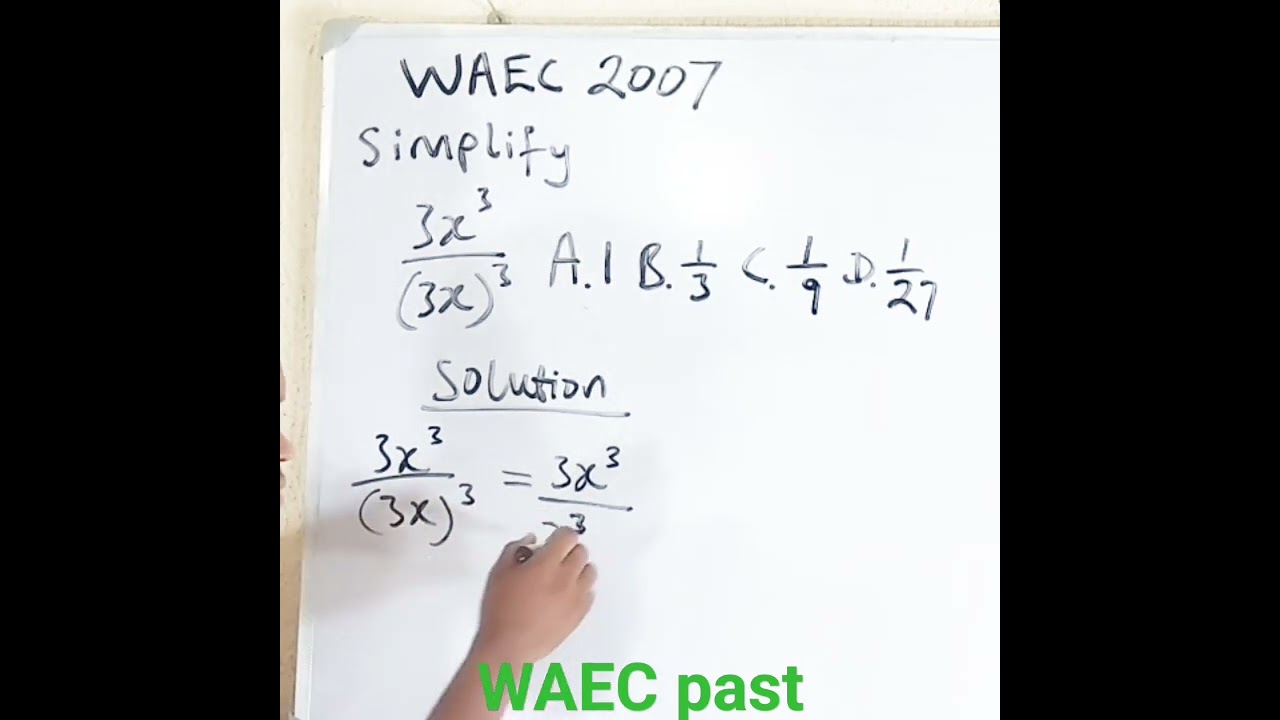 WAEC 2007
Simplify
3x³/(3x)³ A. 1 B. 1/3 C. 1/9 D. 1/27
Solution
3x³/(3x)³ = 3x³/ ³
WAEC past